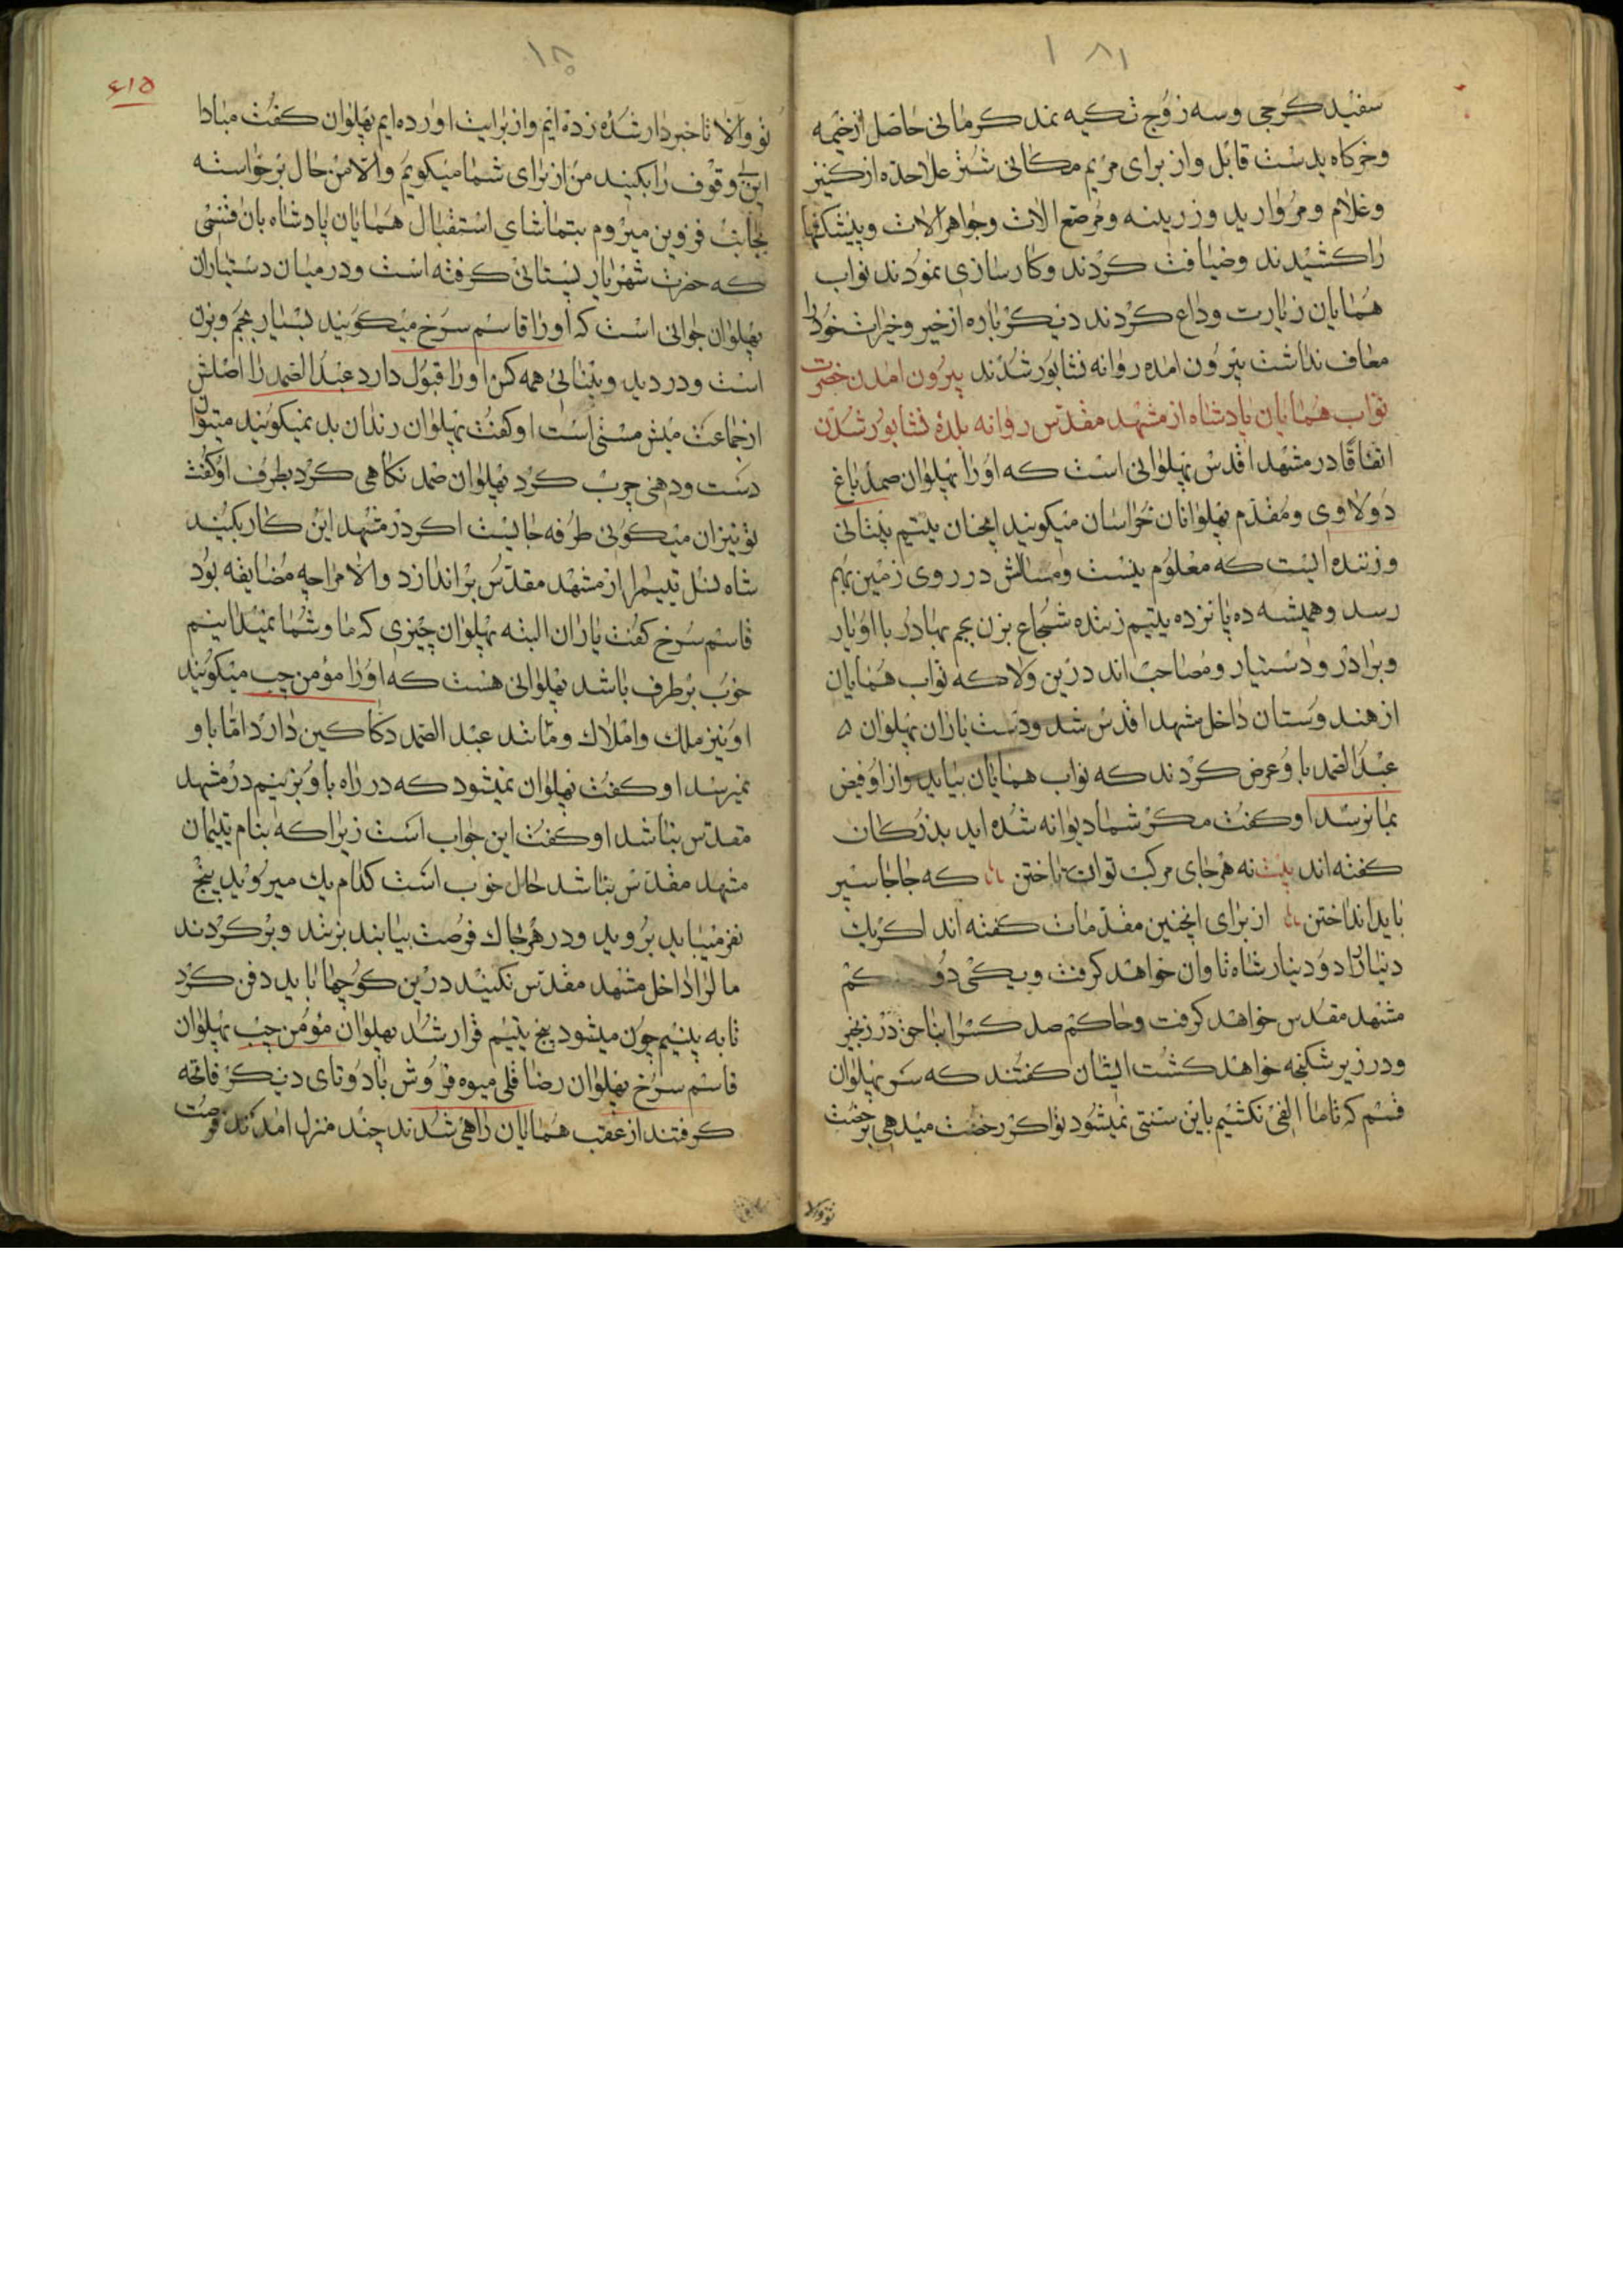 ۱۸۱
سفید کرجی و سه زوج تکیه نمد کرمانی حاصل از خیمه
و خرکاه بدست قابل و از برای مریم مکانی شتر علاحده از کنیز
و غلام و مروارید و زرینه و مرصع الات و جواهر الات و پیشکشها
را کشیدند و ضیافت کردند و کارسازی نمودند نواب
همایان زیارت وداع کردند دیکر باره از خیر و خیرات خود را
معاف نداشت بیرون امده روانه نشابور شدند بیرون امدن حضرت
نواب همایان پادشاه از مشهد مقدس روانه بلدهٔ نشابور شدن
اتفاقا در مشهد اقدس پهلوانی است که او را پهلوان صمد باغ
دولاوی و مقدم پهلوانان خراسان میکویند انچنان یتیم پیشانی
و زننده ایست که معلوم نیست و مثالش در روی زمین بهم
رسد و همیشه ده پانزده یتیم زننده شجاع بزن بجم بهادر با او یار
و برادر و دستیار و مصاحب اند درین ولا که نواب همایان
از هندوستان داخل مشهد اقدس شد و دست یاران پهلوان ه
عبد الصمد با و عرض کردند که نواب همایان بیاید و از او فیض
بما نرسد او کفت مکر شما دیوانه شده اید بزرکان
کفته اند بیت نه هر جای مرکب توان تاختن که جاجا سپر
باید انداختن از برای انچنین مقدمات کفته اند اکر یک
دینار را دو دینار شاه تاوان خواهد کرفت و یکی دو کم
مشهد مقدس خواهد کرفت و حاکم صد کس را بناحق در زنجیر
و در زیر شکنجه خواهد کشت ایشان کفتند که بسر پهلوان
قسم که تا ما الفی نکشیم باین سنتی نمیشود تو اکر رخصت میدهی برخصت
تو والا
۱۸۰
۶۱۵
تو والا تا خبردار شده زده ایم و از برایت اورده ایم پهلوان کفت مبادا
این وقوف را بکنید من از برای شما میکویم و الا من حال برخواسته
بجانب قزوین میروم بتماشای استقبال همایان پادشاه بان فتنسی
که حضرت شهریار بیستانی کرفته است و در میان دستیاران
پهلوان جوانی است که او را قاسم سرخ میکویند بسیار بجم و بزن
است و در دید و بینائی همه کس او را قبول دارد عبد الصمد را اصلش
از جماعت میش مستی است او کفت پهلوان رندان بد نمیکویند میتوان
دست و دهنی چرب کرد پهلوان صمد نکاهی کرد بطرف او کفت
تو نیز ان میکوئی طرفه جائیست اکر در مشهد این کار بکنید
شاه نسل یتیم را از مشهد مقدس براندازد و الا مرا چه مضایقه بود
قاسم سرخ کفت یاران البته پهلوان چیزی که ما و شما نمیدانیم
خوب برطرف باشد پهلوانی هست که او را مؤمن چپ میکویند
او نیز ملک و املاک و مانند عبد الصمد دکاکین دارد اما با و
نمیرسد او کفت پهلوان نمیشود که در راه با و بزنیم در مشهد
مقدس نباشد او کفت این جواب است زیرا که بنام یتیمان
مشهد مقدس نباشد حال خوب است کدام یک میروید پنج
نفر میباید بروید و در هر جا که فرصت بیابند بزنند و برکردند
ما لرا داخل مشهد مقدس نکنید درین کوچها باید دفن کرد
تا به بینیم چون میشود پنج یتیم قرار شد پهلوان مؤمن چپ پهلوان
قاسم سرخ پهلوان رضا قلی میوه فروش با دوتای دیکر فاتحه
کرفتند از عقب همایان راهی شدند چند منزل امدند فرصت